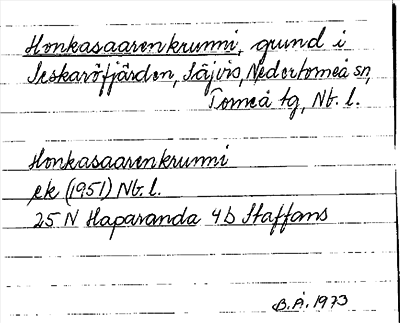 Honkasaarenkrunni, grund i
Seskaröfjärden, Säjvis, Nedertorneå sn,
Torneå tg, Nb. l.
Honkasaarenkrunni
ek (1951) Nb. l.
25 N Haparanda 4b Staffans
B.Å. 1973